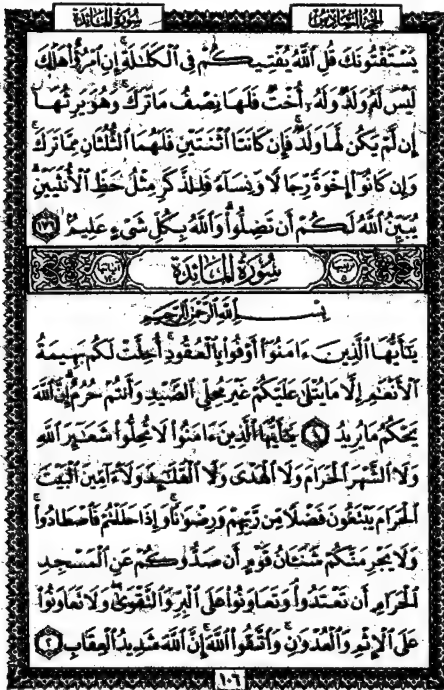 سُورَةُ المَائدَة
الجُزءُ السَّادِسُ
يَسْتَفْتُونَكَ قُلِ ٱللَّهُ يُفْتِيكُمْ فِى ٱلْكَلَٰلَةِ إِنِ ٱمْرُؤٌا۟ هَلَكَ
لَيْسَ لَهُۥ وَلَدٌ وَلَهُۥٓ أُخْتٌ فَلَهَا نِصْفُ مَا تَرَكَ وَهُوَ يَرِثُهَآ
إِن لَّمْ يَكُن لَّهَا وَلَدٌ فَإِن كَانَتَا ٱثْنَتَيْنِ فَلَهُمَا ٱلثُّلُثَانِ مِمَّا تَرَكَ
وَإِن كَانُوٓا۟ إِخْوَةً رِّجَالًا وَنِسَآءً فَلِلذَّكَرِ مِثْلُ حَظِّ ٱلْأُنثَيَيْنِ
يُبَيِّنُ ٱللَّهُ لَكُمْ أَن تَضِلُّوا۟ وَٱللَّهُ بِكُلِّ شَىْءٍ عَلِيمٌۢ ١٧٦
سُورَةُ المَائدَة
بِسْمِ ٱللَّهِ ٱلرَّحْمَٰنِ ٱلرَّحِيمِ
يَٰٓأَيُّهَا ٱلَّذِينَ ءَامَنُوٓا۟ أَوْفُوا۟ بِٱلْعُقُودِ أُحِلَّتْ لَكُم بَهِيمَةُ
ٱلْأَنْعَٰمِ إِلَّا مَا يُتْلَىٰ عَلَيْكُمْ غَيْرَ مُحِلِّى ٱلصَّيْدِ وَأَنتُمْ حُرُمٌ إِنَّ ٱللَّهَ
يَحْكُمُ مَا يُرِيدُ ١ يَٰٓأَيُّهَا ٱلَّذِينَ ءَامَنُوا۟ لَا تُحِلُّوا۟ شَعَٰٓئِرَ ٱللَّهِ
وَلَا ٱلشَّهْرَ ٱلْحَرَامَ وَلَا ٱلْهَدْىَ وَلَا ٱلْقَلَٰٓئِدَ وَلَآ ءَآمِّينَ ٱلْبَيْتَ
ٱلْحَرَامَ يَبْتَغُونَ فَضْلًا مِّن رَّبِّهِمْ وَرِضْوَٰنًا وَإِذَا حَلَلْتُمْ فَٱصْطَادُوا۟
وَلَا يَجْرِمَنَّكُمْ شَنَـَٔانُ قَوْمٍ أَن صَدُّوكُمْ عَنِ ٱلْمَسْجِدِ
ٱلْحَرَامِ أَن تَعْتَدُوا۟ وَتَعَاوَنُوا۟ عَلَى ٱلْبِرِّ وَٱلتَّقْوَىٰ وَلَا تَعَاوَنُوا۟
عَلَى ٱلْإِثْمِ وَٱلْعُدْوَٰنِ وَٱتَّقُوا۟ ٱللَّهَ إِنَّ ٱللَّهَ شَدِيدُ ٱلْعِقَابِ ٢
١٠٦